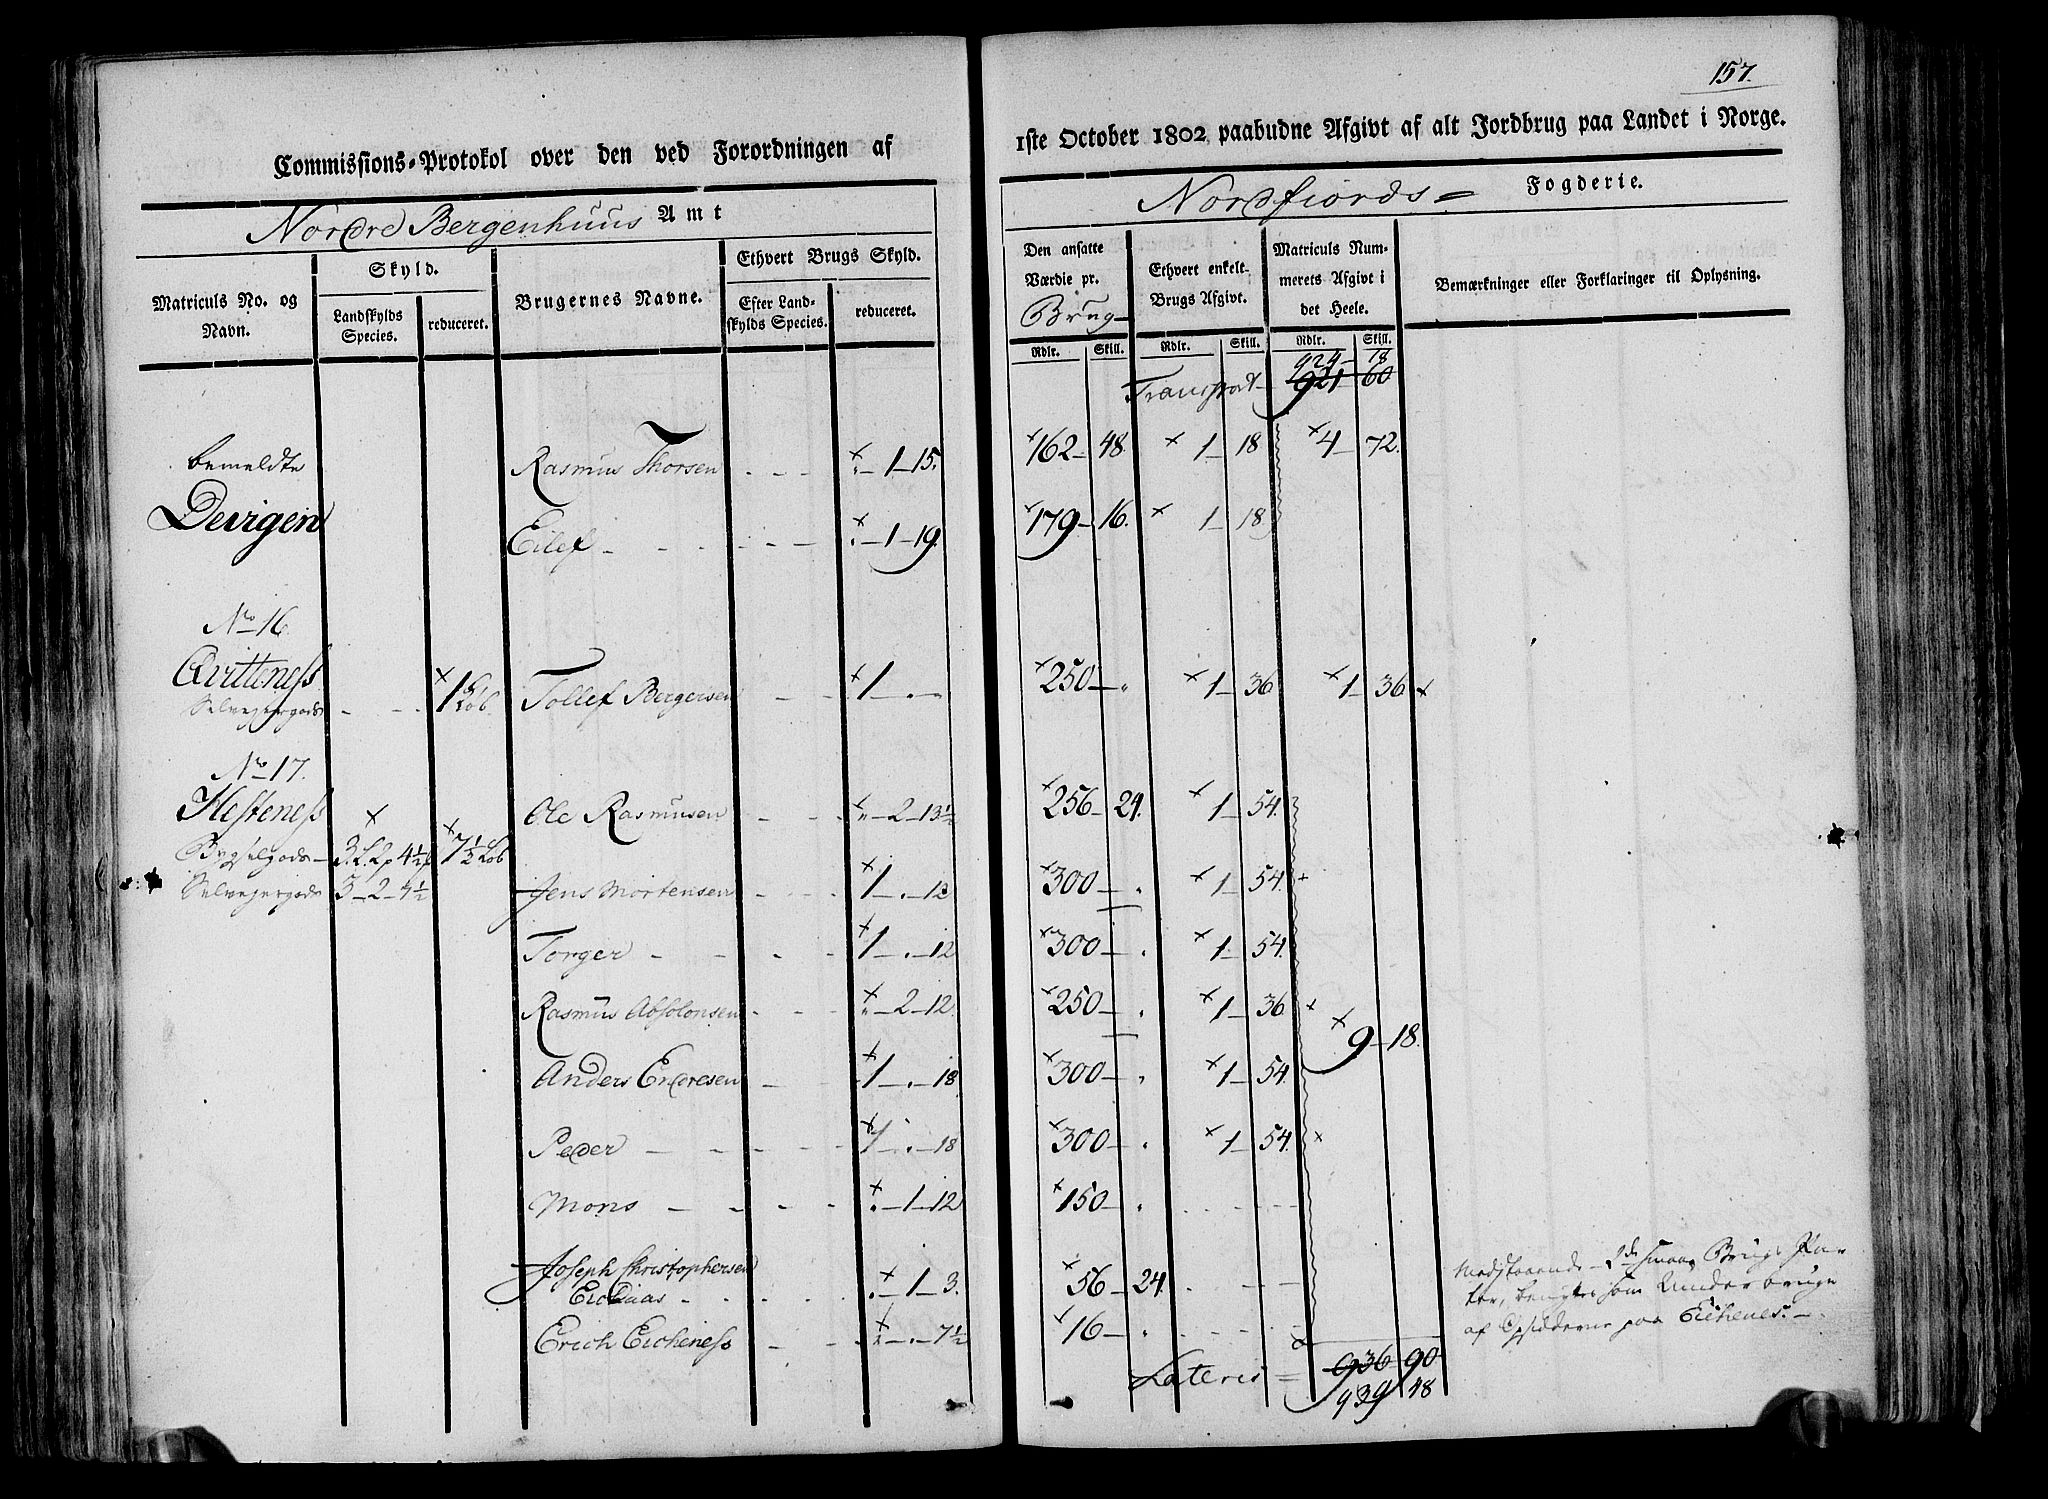 157.
Commissions-Protokol over den ved Forordningen af
1ste October 1802 paabudne Afgivt af alt Jordbrug paa Landet i Norge.
Nordre Bergenhuus Amt
Nordfiords Fogderie.
Matriculs No. og Navn.
Skyld.
Landskylds Species.
reduceret.
Brugernes Navne.
Ethvert Brugs Skyld.
Efter Landskylds Species.
reduceret.
Den ansatte Værdie pr. Brug
Ethvert enkelt Brugs Afgivt.
Matriculs Nummerets Afgivt i det Heele.
Bemærkninger eller Forklaringer til Oplysning.
Rdlr. Skill. Rdlr. Skill. Rdlr. Skill.
924 — 18
Transport — 921 60
bemeldte Rasmus Thorsen - - - × „ — 1 — 15. × 162 — 48. × 1 18 × 4 — 72.
Devigen
Eilef - - - - - - × „ — 1 — 19. × 179 — 16. × 1 — 18
No 16
Qvitteness
Selvejergods - - - × 1 Løb Tollef Bergersen - - × 1 — „ — „ × 250 — „ × 1 — 36 × 1 — 36 ×
No 17.
Hesteness × Ole Rasmusen - - × „ — 2 — 13½ × 256 — 24. × 1 — 54.
Bygselgods — 3. L. 2 p 4½ × 7½ Løb
Selvejergods 3 — 2 — 4½ Jens Mortensen - - × 1 — „ — 12 × 300 — „ × 1 — 54. ×
Torger - - - - × 1 — „ — 12 × 300 — „ × 1 — 54.
Rasmus Absolonsen - - × „ — 2 — 12. × 250 — „ × 1 — 36 ×
× 9 — 18.
Anders Endresen - - × 1 — „ — 18 × 300 — „ × 1 — 54.
Peder - - - - × 1 — „ — 18 × 300 — „ × 1 — 54. ×
Mons - - - - × „ — 1 — 12 × 150 — „ - - -
Joseph Christophersen
Eidaas - - - - × „ — 1 — 3. × 56 — 24. - - -
Erich Eicheness - - × „ — „ — 7½ × 16 — „ - - -
Medstaaende 2de smaae Brugs Par
ter, benyttes som Underbruge
af Opsidderne paa Eichenes. —
Lateris = 936 90
939 48